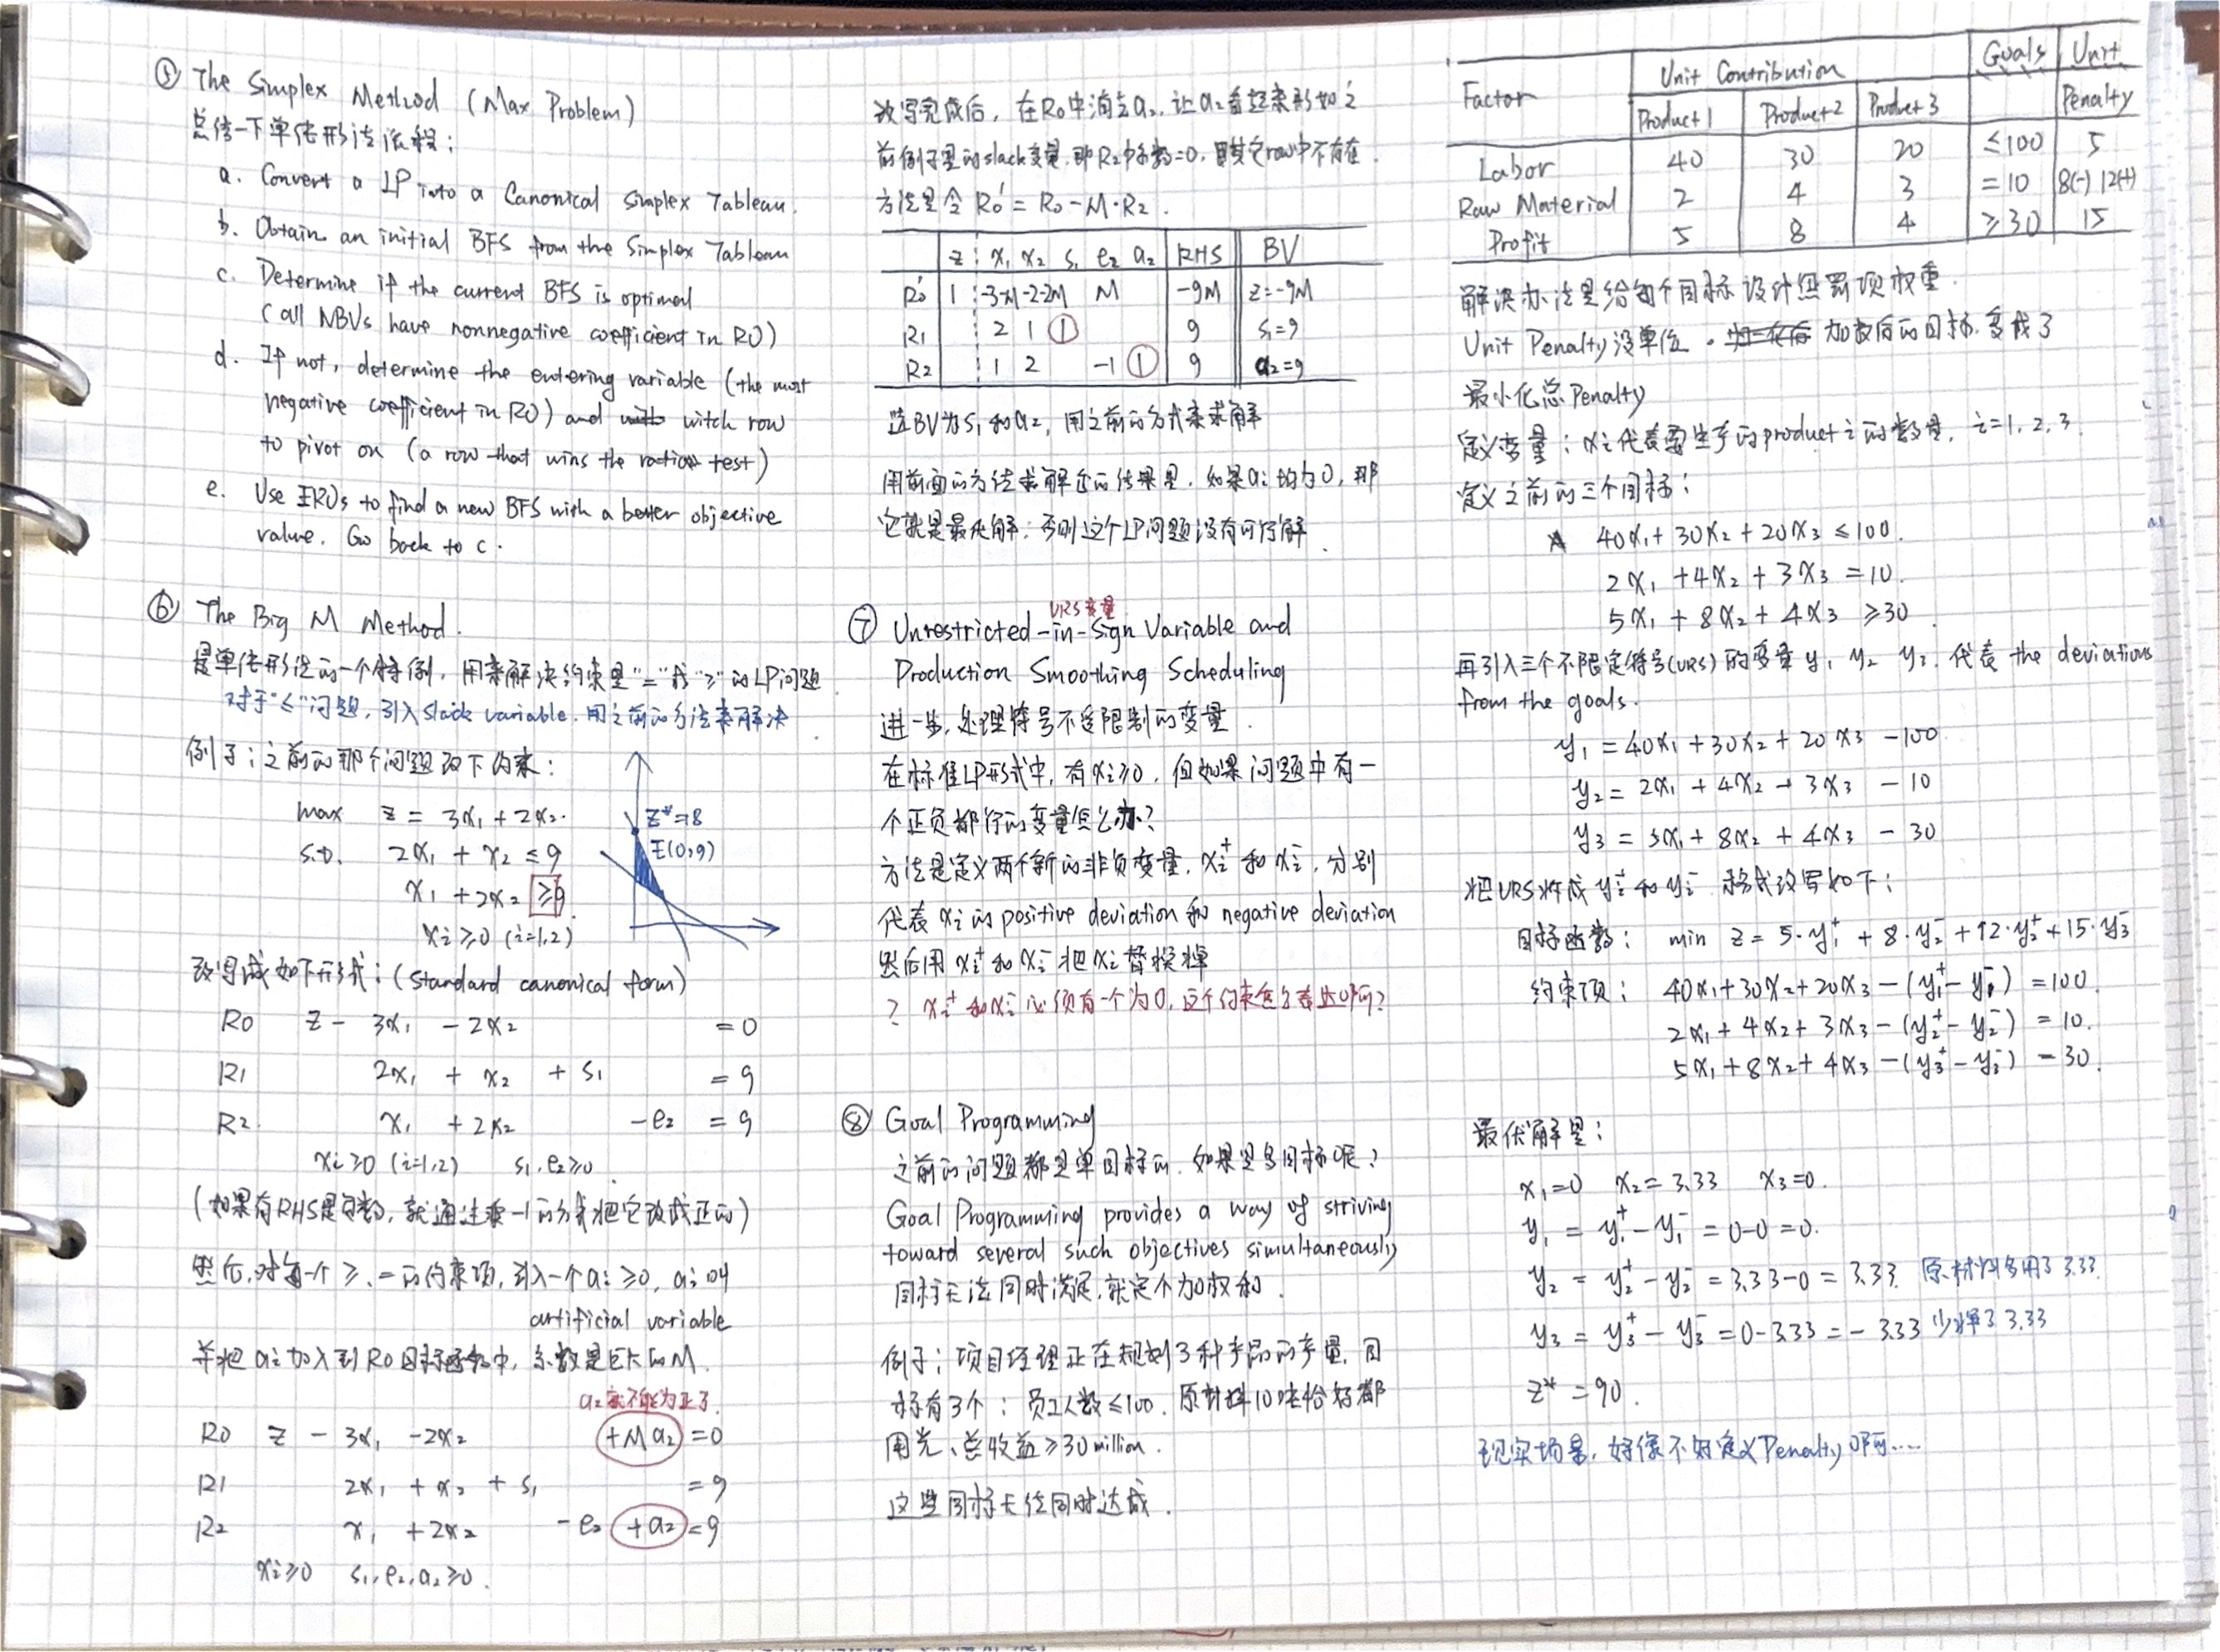 ⑤ The Simplex Method (Max Problem)
总结一下单纯形法流程：
a. Convert a LP into a Canonical Simplex Tableau.
b. Obtain an initial BFS from the Simplex Tableau
c. Determine if the current BFS is optimal
(all NBVs have nonnegative coefficient in R0)
d. If not, determine the entering variable (the most
negative coefficient in R0) and witch row
to pivot on (a row that wins the ratio test)
e. Use EROs to find a new BFS with a better objective
value. Go back to c.
⑥ The Big M Method.
是单纯形法的一个特例，用来解决约束是"="或"≥"的LP问题
对于"≤"问题，引入slack variable，用之前的方法来解决
例子：之前的那个问题改下约束：
max z = 3x₁ + 2x₂.
s.t. 2x₁ + x₂ ≤ 9
x₁ + 2x₂ ≥9
xᵢ≥0 (i=1,2)
z*=18
E(0,9)
改写成如下形式：(standard canonical form)
R0 z - 3x₁ - 2x₂ = 0
R1 2x₁ + x₂ + s₁ = 9
R2 x₁ + 2x₂ - e₂ = 9
xᵢ≥0 (i=1,2) s₁, e₂≥0
(如果有RHS是负数，就通过乘-1的方式把它改成正的)
然后，对每一个≥、=的约束项，引入一个aᵢ≥0, aᵢ叫
artificial variable
并把aᵢ加入到R0目标函数中，系数是巨大的M.
a₂就不能为正了.
R0 z - 3x₁ - 2x₂ +Ma₂ = 0
R1 2x₁ + x₂ + s₁ = 9
R2 x₁ + 2x₂ - e₂ +a₂ = 9
xᵢ≥0 s₁, e₂, a₂≥0.
改写完成后，在R0中消去a₂，让a₂看起来形如之
前例子里的slack变量，即R₂中系数=0，且其它row中不存在.
方法是令 R0′ = R0 - M·R2.
z x₁ x₂ s₁ e₂ a₂ RHS BV
R0′ 1 -3-M -2-2M M -9M z=-9M
R1 2 1 ① 9 s₁=9
R2 1 2 -1 ① 9 a₂=9
选BV为s₁和a₂，用之前的方式来求解
用前面的方法求解出的结果里，如果aᵢ均为0，那
它就是最优解；否则这个LP问题没有可行解.
URS变量
⑦ Unrestricted-in-Sign Variable and
Production Smoothing Scheduling
进一步，处理符号不受限制的变量.
在标准LP形式中，有xᵢ≥0，但如果问题中有一
个正负都行的变量怎么办？
方法是定义两个新的非负变量，xᵢ⁺和xᵢ⁻，分别
代表xᵢ的positive deviation和negative deviation
然后用xᵢ⁺和xᵢ⁻把xᵢ替换掉
? xᵢ⁺和xᵢ⁻必须有一个为0，这个约束怎么表达呀？
⑧ Goal Programming
之前的问题都是单目标的，如果是多目标呢？
Goal Programming provides a way of striving
toward several such objectives simultaneously
目标无法同时满足，就定个加权和.
例子：项目经理正在规划3种产品的产量，目
标有3个：员工人数≤100、原材料10吨恰好都
用光、总收益≥30 million.
这些目标无法同时达成.
Factor Unit Contribution Goals Unit
Product1 Product2 Product3 Penalty
Labor 40 30 20 ≤100 5
Raw Material 2 4 3 =10 8(-) 12(+)
Profit 5 8 4 ≥30 15
解决办法是给每个目标设计惩罚项权重.
Unit Penalty没单位. 加权后的目标，变成了
最小化总Penalty
定义变量：xᵢ代表要生产的product i的数量，i=1, 2, 3.
定义之前的三个目标：
40x₁ + 30x₂ + 20x₃ ≤100.
2x₁ + 4x₂ + 3x₃ = 10.
5x₁ + 8x₂ + 4x₃ ≥30.
再引入三个不限定符号(URS)的变量 y₁ y₂ y₃，代表 the deviations
from the goals.
y₁ = 40x₁ + 30x₂ + 20x₃ - 100
y₂ = 2x₁ + 4x₂ + 3x₃ - 10
y₃ = 5x₁ + 8x₂ + 4x₃ - 30
把URS拆成yᵢ⁺和yᵢ⁻，格式改写如下：
目标函数： min z = 5·y₁⁺ + 8·y₂⁻ + 12·y₂⁺ + 15·y₃⁻
约束项： 40x₁+30x₂+20x₃-(y₁⁺-y₁⁻) = 100.
2x₁+4x₂+3x₃-(y₂⁺-y₂⁻) = 10.
5x₁+8x₂+4x₃-(y₃⁺-y₃⁻) = 30.
最优解是：
x₁=0 x₂=3.33 x₃=0.
y₁ = y₁⁺-y₁⁻ = 0-0 = 0.
y₂ = y₂⁺-y₂⁻ = 3.33-0 = 3.33. 原材料多用了3.33.
y₃ = y₃⁺-y₃⁻ = 0-3.33 = -3.33 少挣了3.33
z* = 90.
现实场景，好像不好定义Penalty啊....